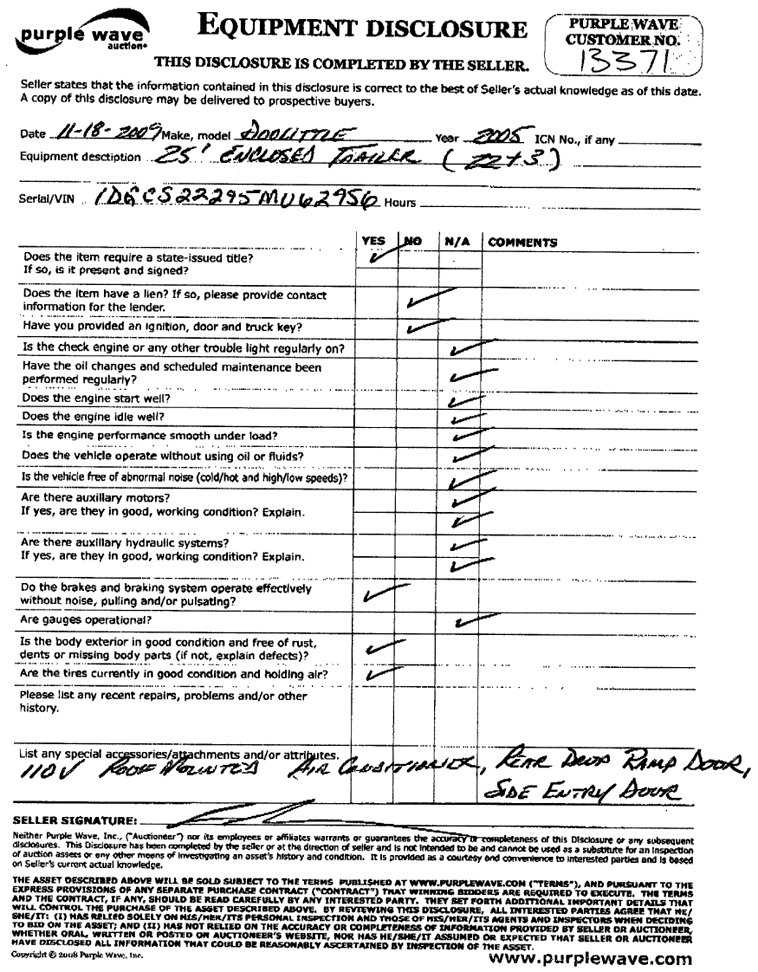 purple wave
auction®
EQUIPMENT DISCLOSURE
PURPLE WAVE
CUSTOMER NO.
13371
THIS DISCLOSURE IS COMPLETED BY THE SELLER.
Seller states that the information contained in this disclosure is correct to the best of Seller's actual knowledge as of this date.
A copy of this disclosure may be delivered to prospective buyers.
Date 11-18-2009 Make, model DOOLITTLE Year 2005 ICN No., if any
Equipment desctiption 25' ENCLOSED TRAILER (22+3)
Serial/VIN 1DGCS22295MU62956 Hours
YES NO N/A COMMENTS
Does the item require a state-issued title?
If so, is it present and signed?
Does the item have a lien? If so, please provide contact
information for the lender.
Have you provided an ignition, door and truck key?
Is the check engine or any other trouble light regularly on?
Have the oil changes and scheduled maintenance been
performed regularly?
Does the engine start well?
Does the engine idle well?
Is the engine performance smooth under load?
Does the vehicle operate without using oil or fluids?
Is the vehicle free of abnormal noise (cold/hot and high/low speeds)?
Are there auxillary motors?
If yes, are they in good, working condition? Explain.
Are there auxillary hydraulic systems?
If yes, are they in good, working condition? Explain.
Do the brakes and braking system operate effectively
without noise, pulling and/or pulsating?
Are gauges operational?
Is the body exterior in good condition and free of rust,
dents or missing body parts (if not, explain defects)?
Are the tires currently in good condition and holding air?
Please list any recent repairs, problems and/or other
history.
List any special accessories/attachments and/or attributes.
110V ROOF MOUNTED AIR CONDITIONER, REAR DROP RAMP DOOR,
SIDE ENTRY DOOR
SELLER SIGNATURE:
Neither Purple Wave, Inc., ("Auctioneer") nor its employees or affiliates warrants or guarantees the accuracy or completeness of this Disclosure or any subsequent
disclosures. This Disclosure has been completed by the seller or at the direction of seller and is not intended to be and cannot be used as a substitute for an inspection
of auction assets or any other means of investigating an asset's history and condition. It is provided as a courtesy and convenience to interested parties and is based
on Seller's current actual knowledge.
THE ASSET DESCRIBED ABOVE WILL BE SOLD SUBJECT TO THE TERMS PUBLISHED AT WWW.PURPLEWAVE.COM ("TERMS"), AND PURSUANT TO THE
EXPRESS PROVISIONS OF ANY SEPARATE PURCHASE CONTRACT ("CONTRACT") THAT WINNING BIDDERS ARE REQUIRED TO EXECUTE. THE TERMS
AND THE CONTRACT, IF ANY, SHOULD BE READ CAREFULLY BY ANY INTERESTED PARTY. THEY SET FORTH ADDITIONAL IMPORTANT DETAILS THAT
WILL CONTROL THE PURCHASE OF THE ASSET DESCRIBED ABOVE. BY REVIEWING THIS DISCLOSURE, ALL INTERESTED PARTIES AGREE THAT HE/
SHE/IT: (I) HAS RELIED SOLELY ON HIS/HER/ITS PERSONAL INSPECTION AND THOSE OF HIS/HER/ITS AGENTS AND INSPECTORS WHEN DECIDING
TO BID ON THE ASSET; AND (II) HAS NOT RELIED ON THE ACCURACY OR COMPLETENESS OF INFORMATION PROVIDED BY SELLER OR AUCTIONEER,
WHETHER ORAL, WRITTEN OR POSTED ON AUCTIONEER'S WEBSITE, NOR HAS HE/SHE/IT ASSUMED OR EXPECTED THAT SELLER OR AUCTIONEER
HAVE DISCLOSED ALL INFORMATION THAT COULD BE REASONABLY ASCERTAINED BY INSPECTION OF THE ASSET.
Copyright © 2008 Purple Wave, Inc.
www.purplewave.com